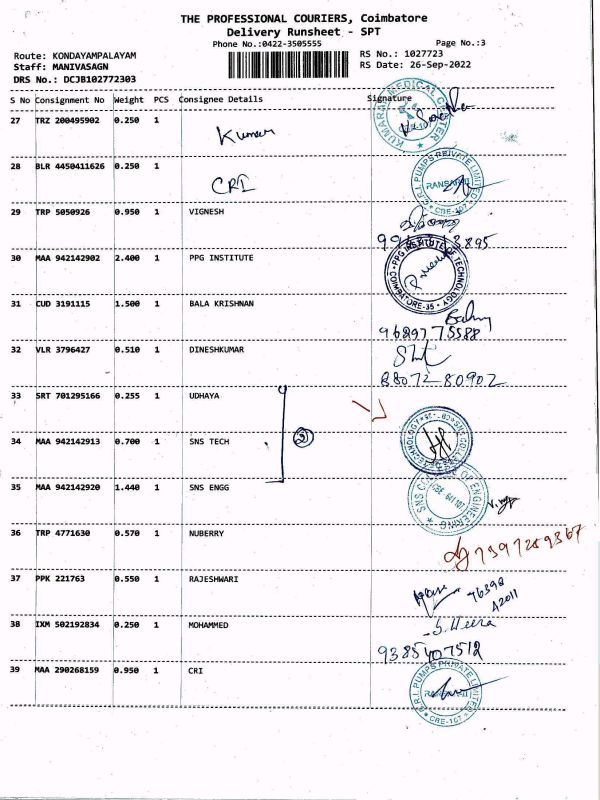 THE PROFESSIONAL COURIERS, Coimbatore
Delivery Runsheet - SPT
Phone No.:0422-3505555
Page No.:3
Route: KONDAYAMPALAYAM
RS No.: 1027723
Staff: MANIVASAGN
RS Date: 26-Sep-2022
DRS No.: DCJB102772303
S No Consignment No Weight PCS Consignee Details Signature
27 TRZ 200495902 0.250 1 Kumar
KUMARAN MEDICAL CENTER
28 BLR 4450411626 0.250 1 CRI
C.R.I. PUMPS PRIVATE LIMITED CBE-107
29 TRP 5050926 0.950 1 VIGNESH
30 MAA 942142902 2.400 1 PPG INSTITUTE
PPG INSTITUTE OF TECHNOLOGY COIMBATORE-35
31 CUD 3191115 1.500 1 BALA KRISHNAN
9689775588
32 VLR 3796427 0.510 1 DINESHKUMAR
88072 80902
33 SRT 701295166 0.255 1 UDHAYA
34 MAA 942142913 0.700 1 SNS TECH
SNS COLLEGE OF TECHNOLOGY
35 MAA 942142920 1.440 1 SNS ENGG
SNS COLLEGE OF ENGINEERING CBE 641 107
36 TRP 4771630 0.570 1 NUBERRY
7397289867
37 PPK 221763 0.550 1 RAJESHWARI
76398
A2011
38 IXM 502192834 0.250 1 MOHAMMED
S. Meera
9385407512
39 MAA 290268159 0.950 1 CRI
C.R.I. PUMPS PRIVATE LIMITED CBE-107